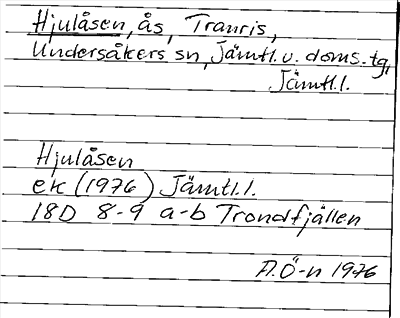 Hjulåsen, ås, Tranris,
Undersåkers sn, Jämtl. v. doms. tg,
Jämtl.l.
Hjulåsen
ek (1976) Jämtl.l.
18D 8-9 a-b Trondfjällen
A.Ö-n 1976